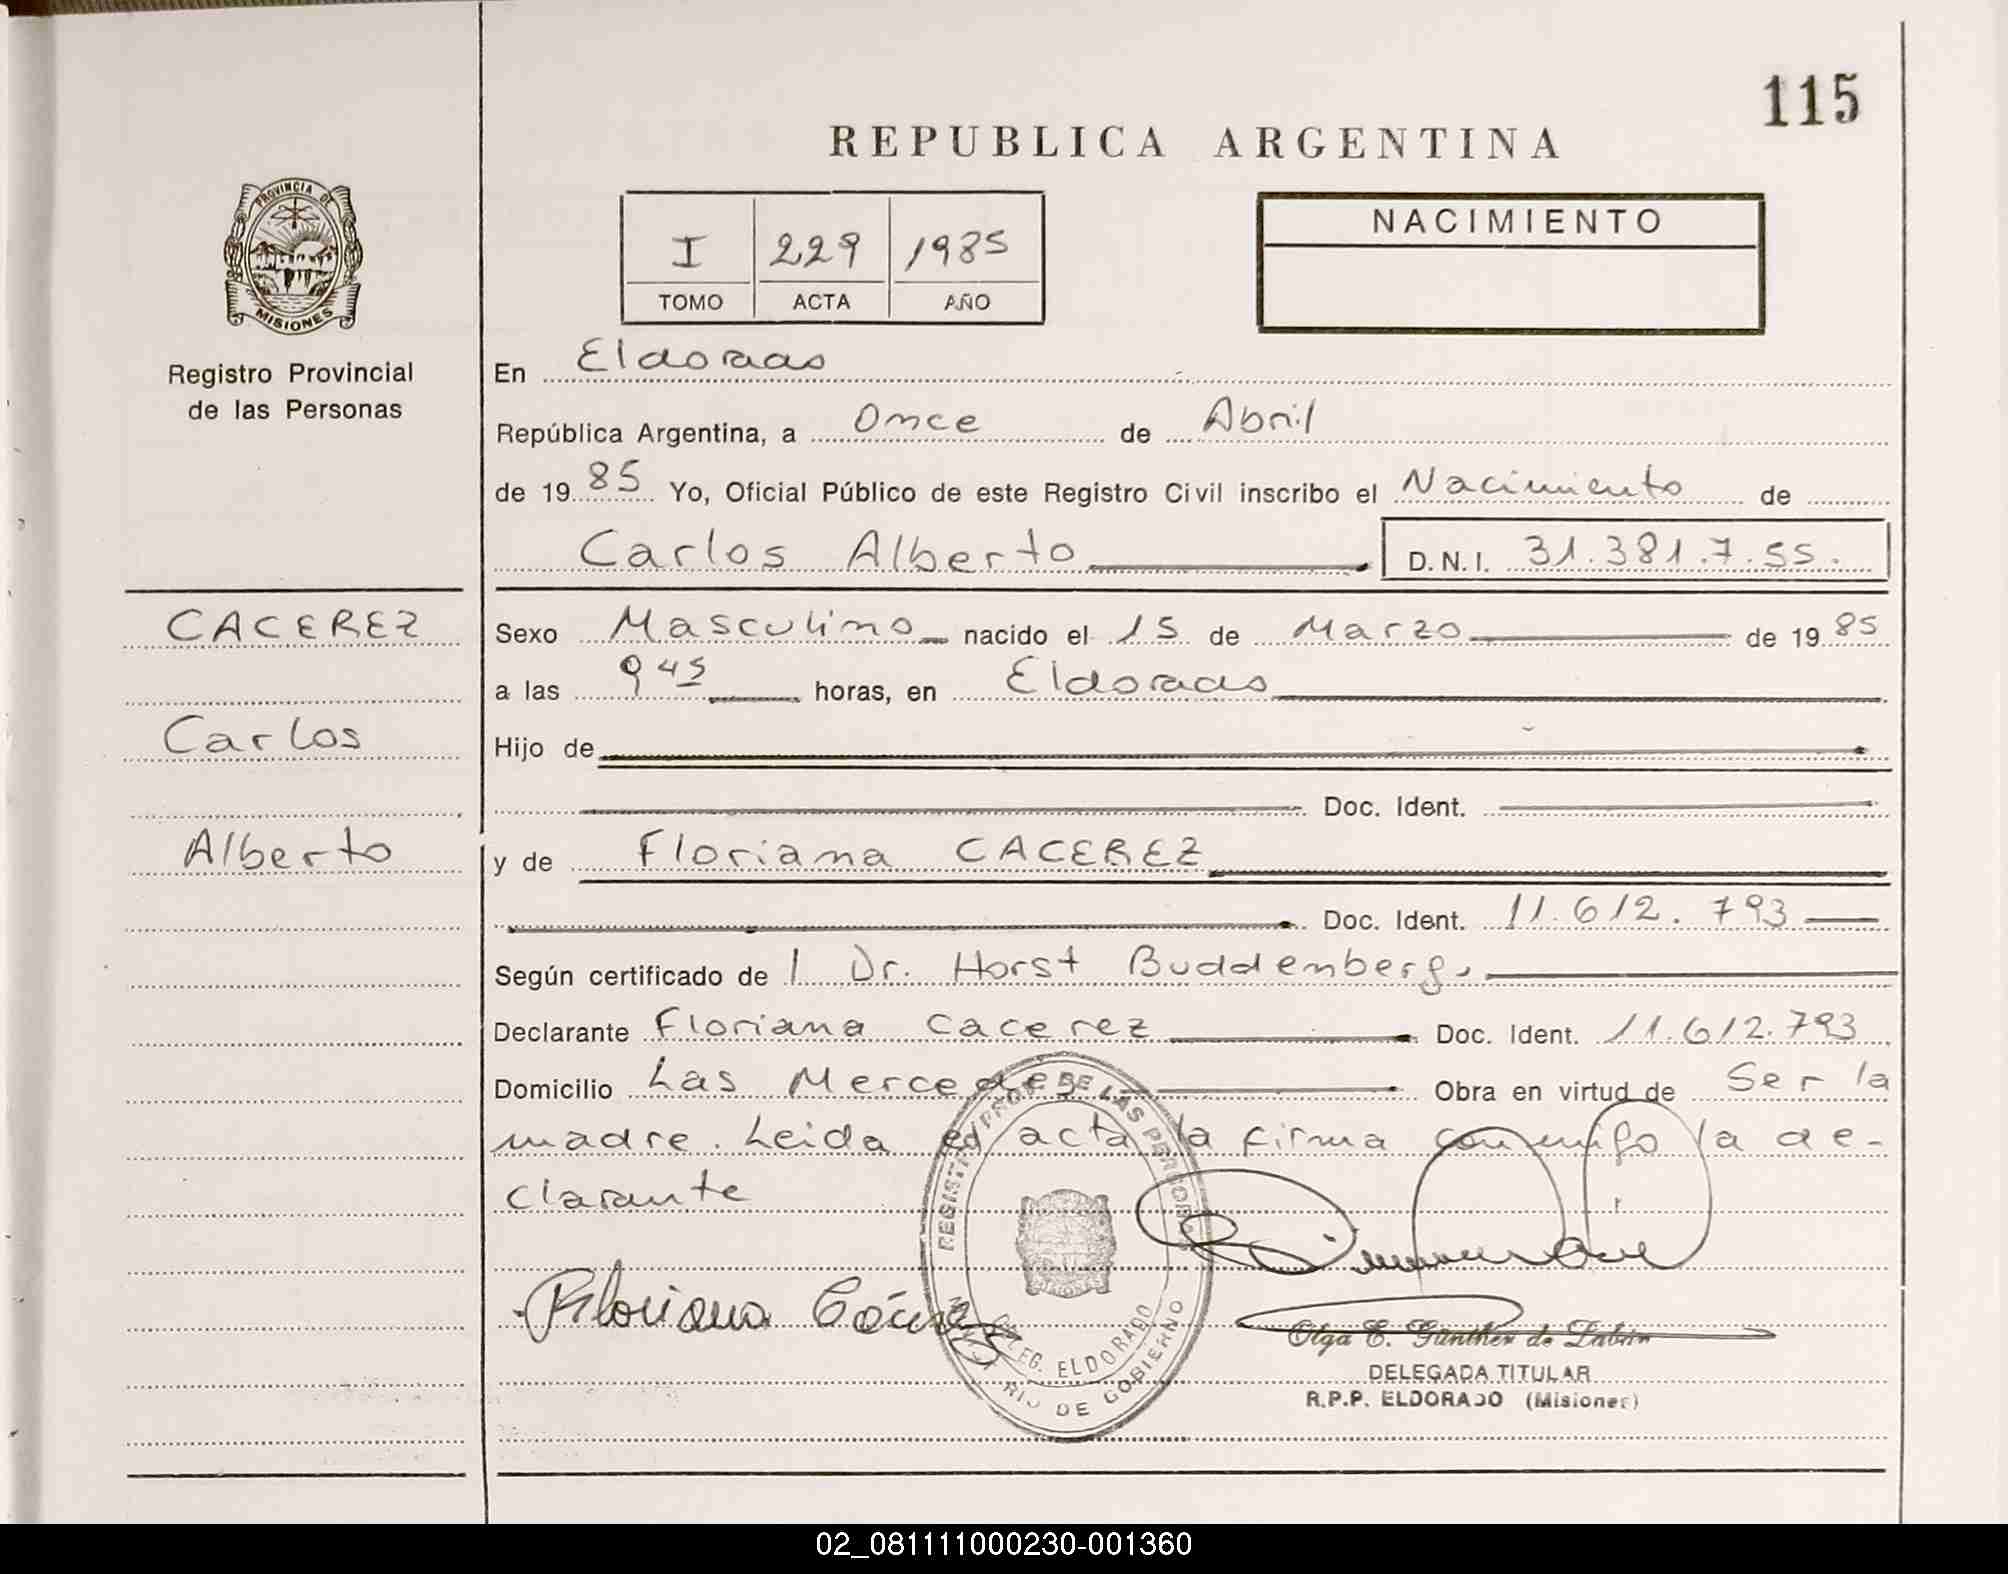 115
REPUBLICA ARGENTINA
PROVINCIA DE
MISIONES
Registro Provincial
de las Personas
I 229 1985
TOMO ACTA AÑO
NACIMIENTO
En Eldorado
República Argentina, a Once de Abril
de 1985 Yo, Oficial Público de este Registro Civil inscribo el Nacimiento de
Carlos Alberto D.N.I. 31.381.7.55.
CACEREZ
Carlos
Alberto
Sexo Masculino nacido el 15 de Marzo de 1985
a las 9 45 horas, en Eldorado
Hijo de
Doc. Ident.
y de Floriana CACEREZ
Doc. Ident. 11.612.793
Según certificado de l Dr. Horst Buddenberg.
Declarante Floriana Cacerez Doc. Ident. 11.612.793
Domicilio Las Mercedes Obra en virtud de Ser la
madre. Leida el acta la firma conmigo la de-
clarante
Floriana Cácerez
REGISTRO PROV. DE LAS PERSONAS
DELEG. ELDORADO
DE GOBIERNO
Olga E. Günther de Labin
DELEGADA TITULAR
R.P.P. ELDORADO (Misiones)
02_081111000230-001360